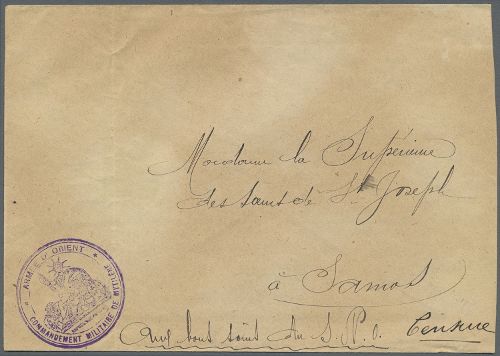 Madame la Supérieure
des Sœurs de St Joseph
à Samos
Aux bons soins du S.N.
Censure
ARMÉE D'ORIENT
COMMANDEMENT MILITAIRE DE MITYLÈNE